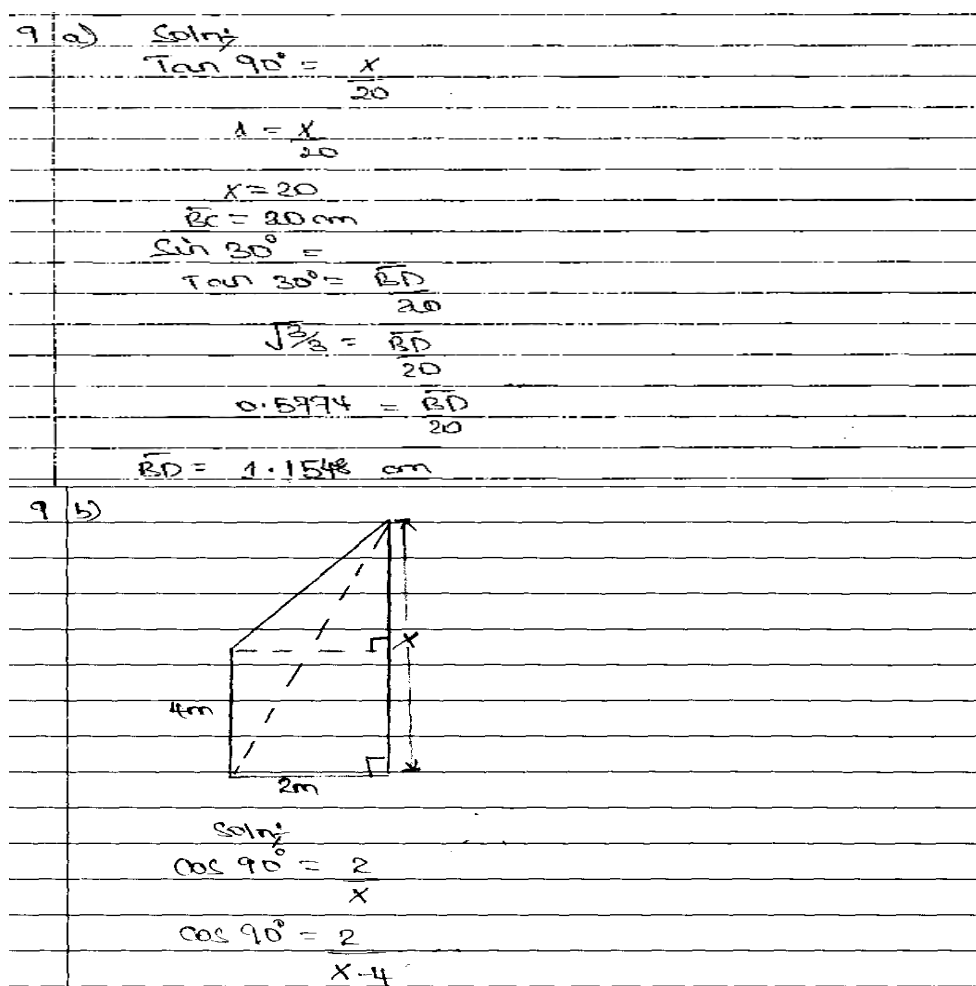 9 a) Soln;
Tan 90° = x/20
1 = x/20
x = 20
B̅C̅ = 20 cm
Sin 30° =
Tan 30° = B̅D̅/20
√3/3 = B̅D̅/20
0.5774 = B̅D̅/20
B̅D̅ = 1.1548 cm
9 b)
x
4m
2m
Soln;
cos 90° = 2/x
cos 90° = 2/x-4